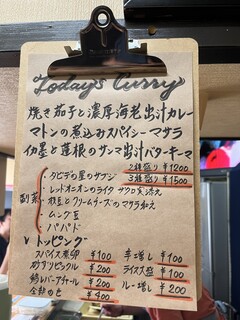 Today's Curry
焼き茄子と濃厚海老出汁カレー
マトンの煮込みスパイシーマサラ
イカ墨と蓮根のサンマ出汁バターキーマ
2種盛り ¥1200
3種盛り ¥1500
副菜
・タヒチの星のサブジ
・レッドオニオンのライタ ザクロ実添え
・枝豆とクリームチーズのマサラ和え
・ムング豆
・パパド
トッピング
スパイス煮卵 ¥100
¥100
鶏レバーアチール ¥200
全部のせ ¥400
辛増し ¥100
ライス大盛 ¥100
ルー増し ¥200